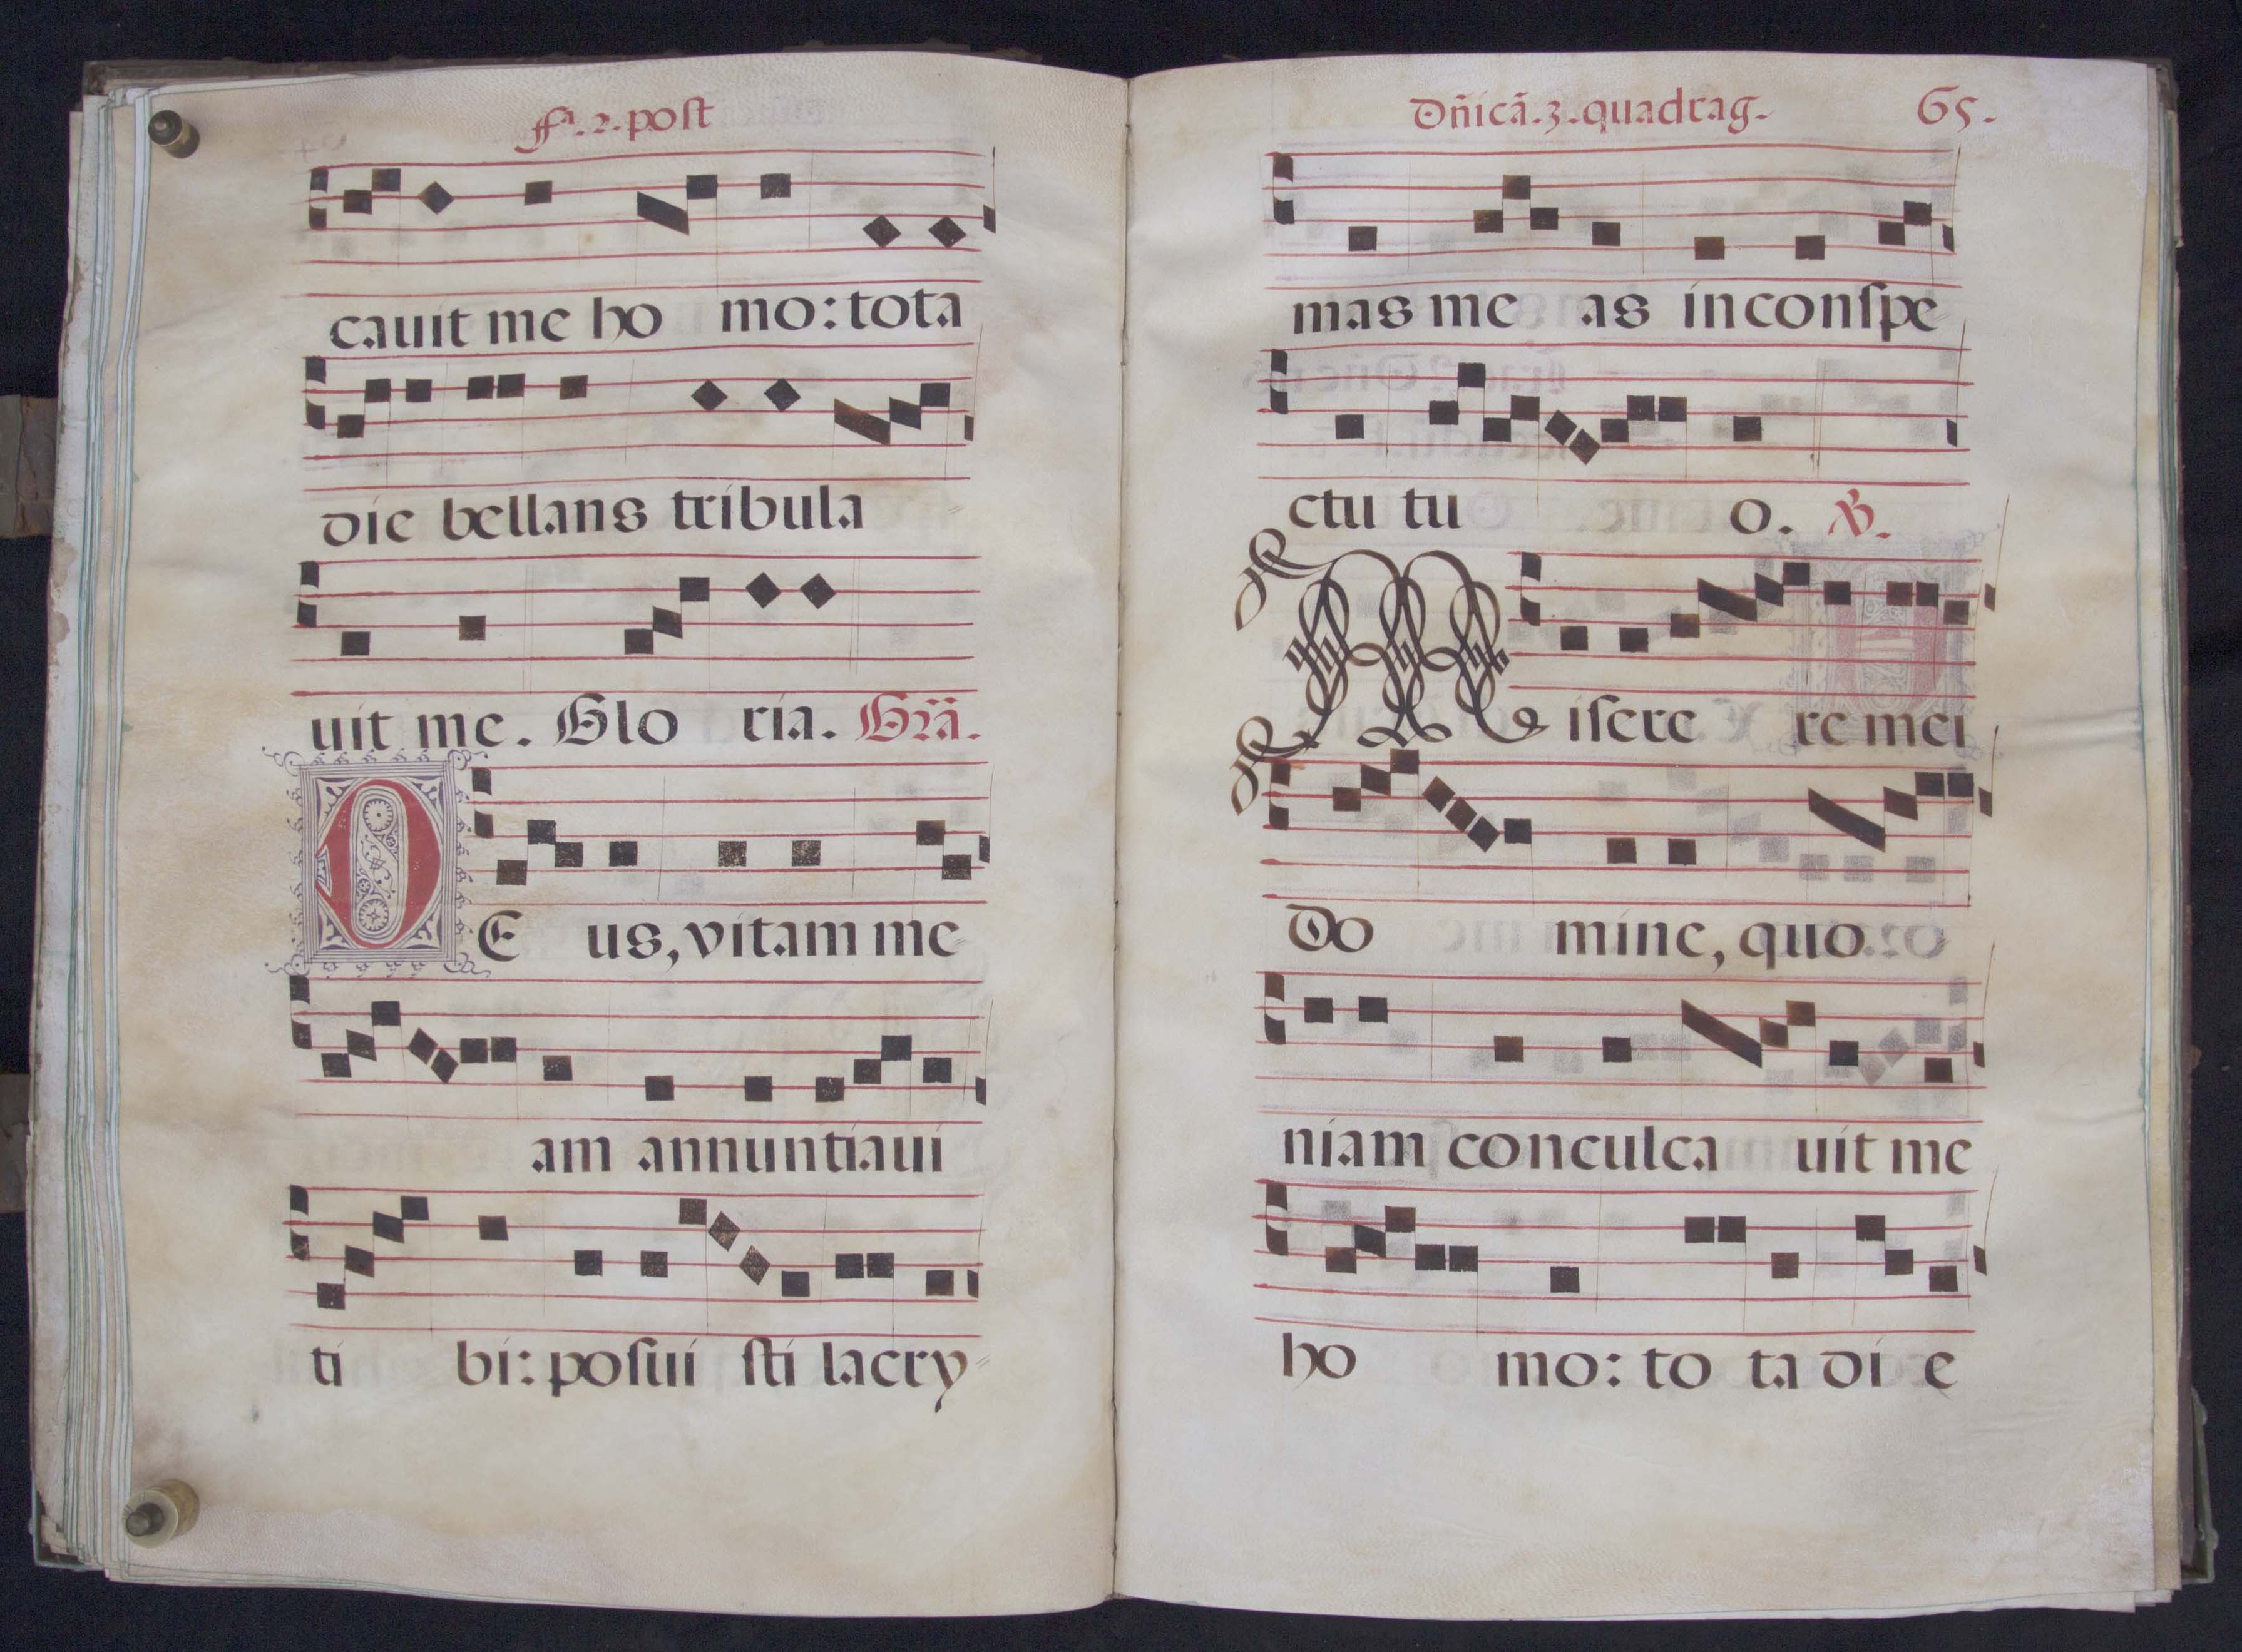 fª. 2. poſt
cauit me ho mo: tota
die bellans tribula
uit me. Glo ria. Grã.
DE us, vitam me
am annuntiaui
ti bi: poſui ſti lacry
Dñicã. 3. quadrag. 65.
mas me as in conſpe
ctu tu o. ℣.
Miſere re mei
Do mine, quo
niam conculca uit me
ho mo: to ta di e